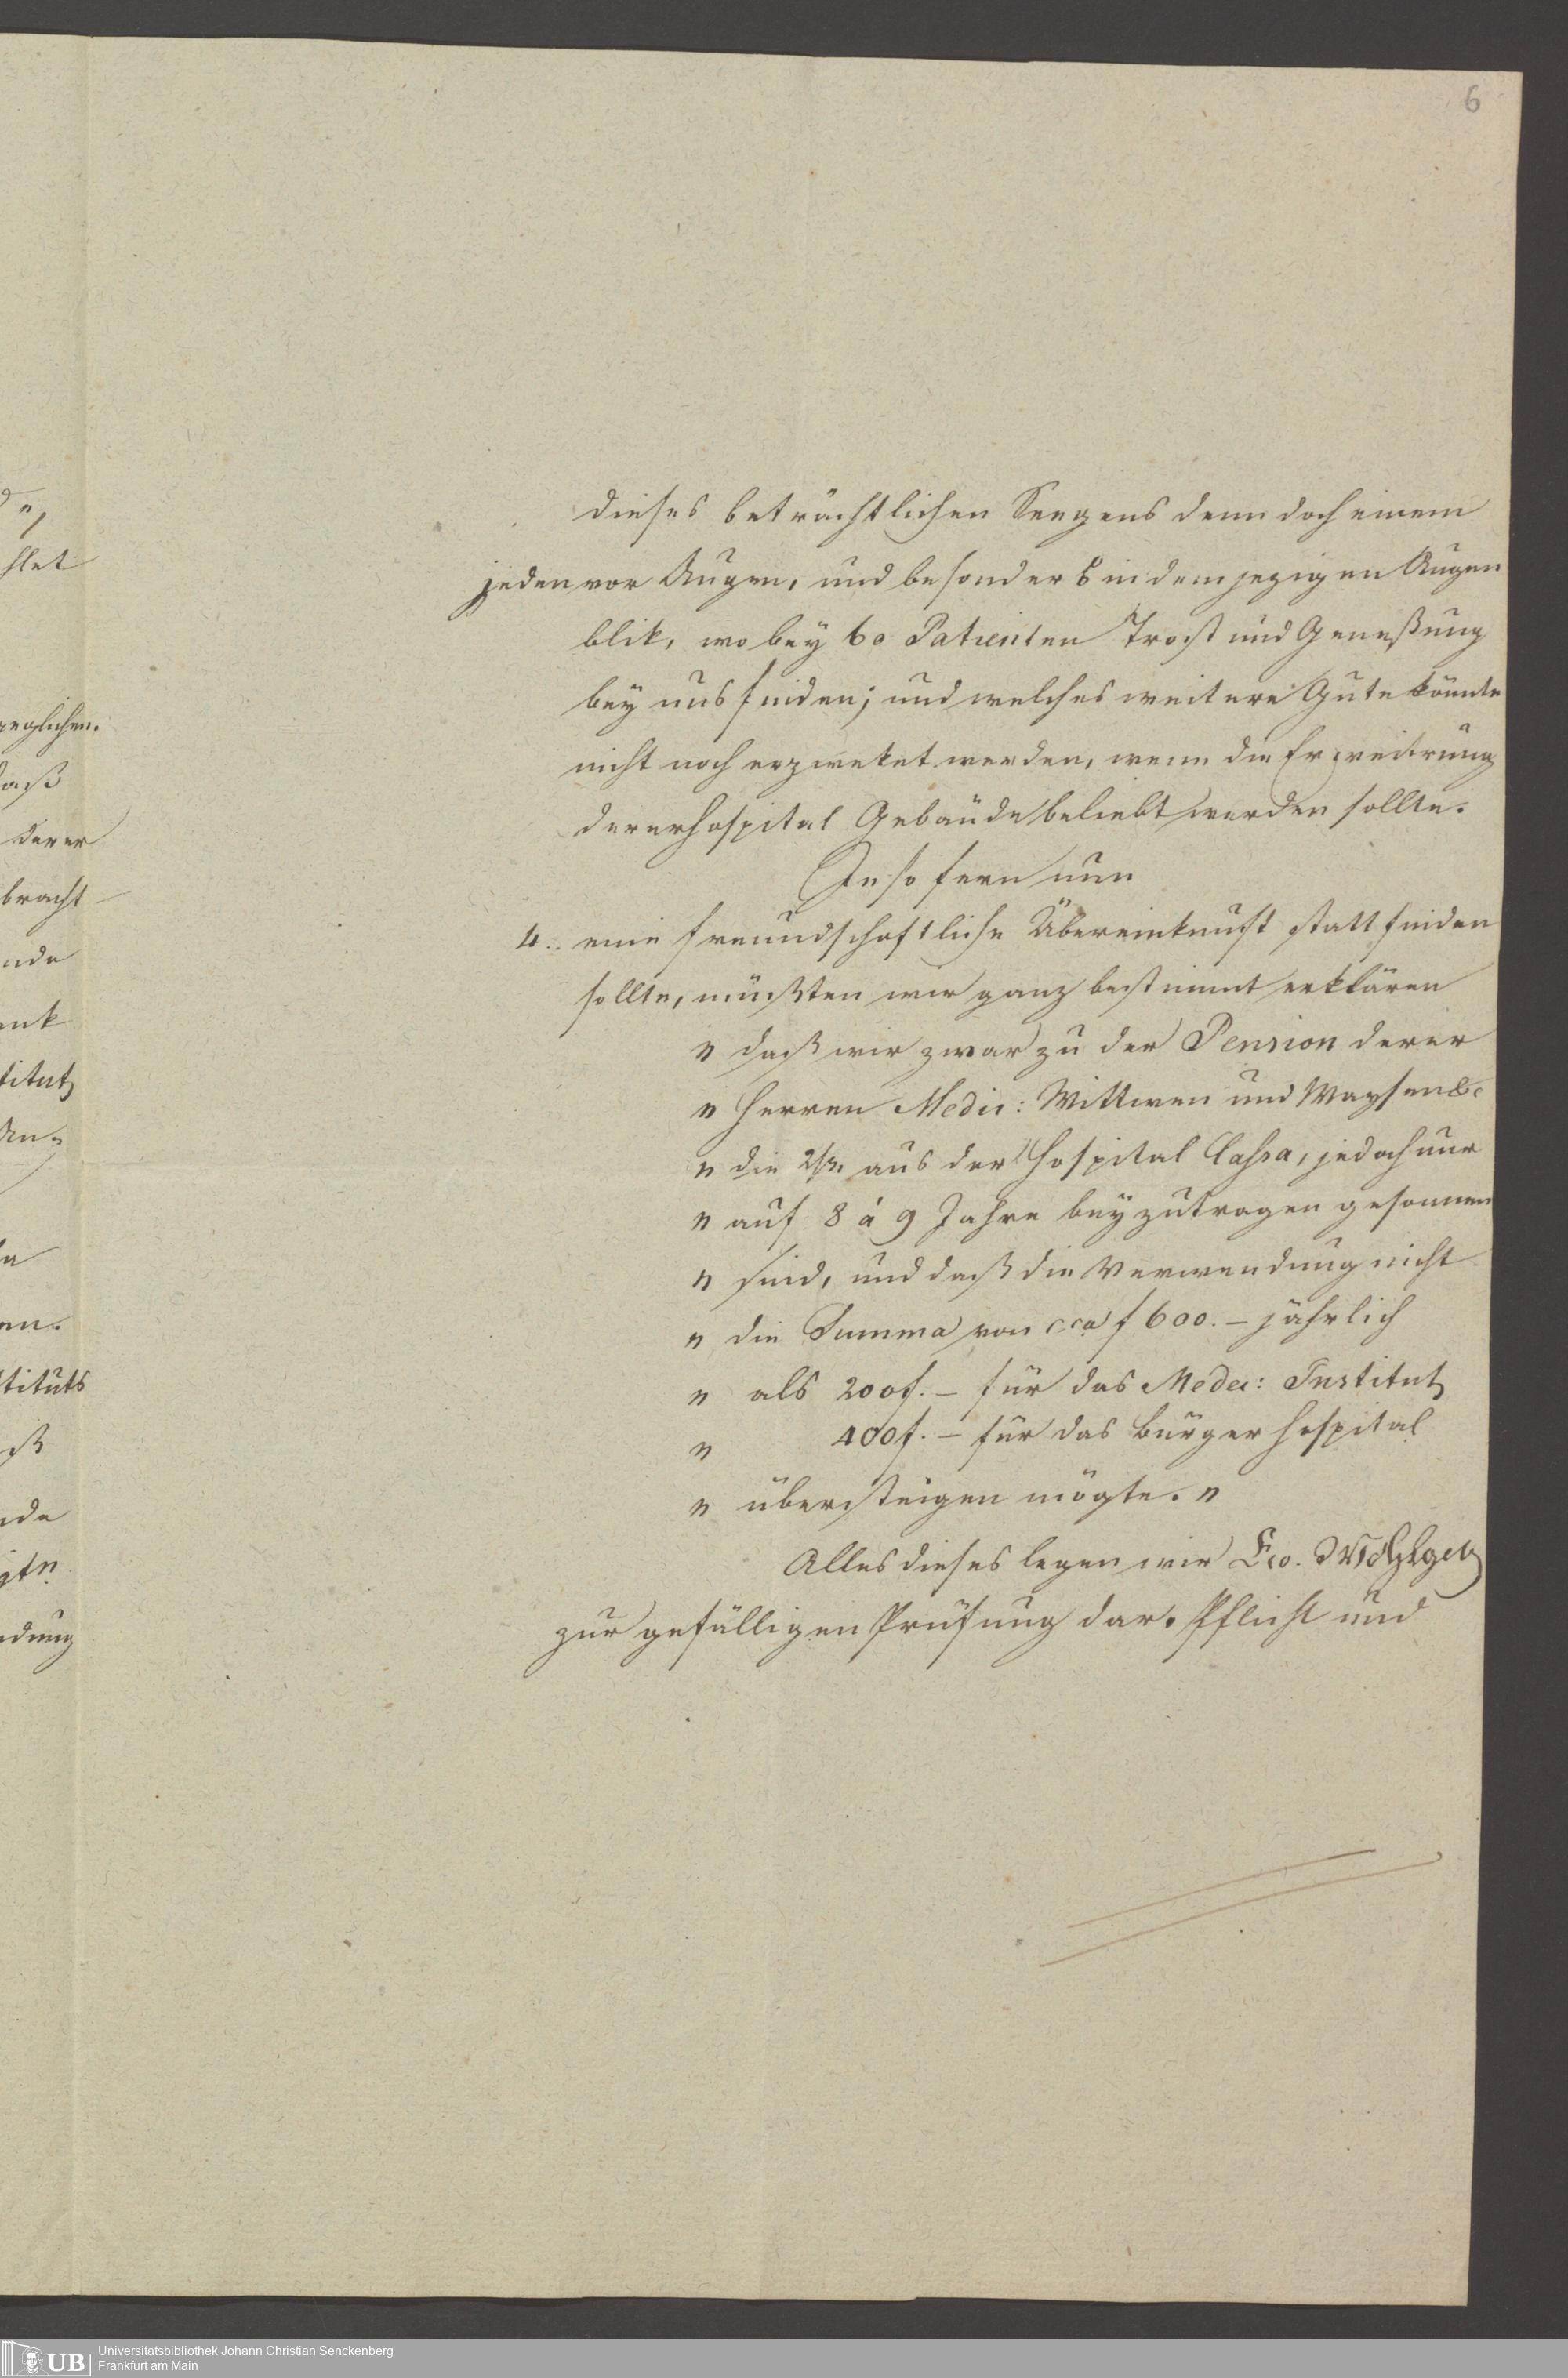 6
dieses beträchtlichen Seegens denn doch einem
jeden vor Augen, und besonders in dem jezigen Augen
blik, wo bey 60 Patienten Trost und Geneßung
bey uns finden; und welches weitere Gute könnte
nicht noch erzweket werden, wenn die Erweitrung
derer Hospital Gebäude beliebt werden sollte.
In so fern nun
4.. eine freundschaftliche Übereinkunft statt finden
sollte, müßten wir ganz bestimmt erklären
" daß wir zwar zu der Pension derer
" Herren Medic: Wittwen und Waysen &c
" die 2/3 aus der Hospital Cassa, jedoch nur
" auf 8 à 9 Jahre beyzutragen gesonnen
" sind, und daß die Verwendung nicht
" die Summa von cca f 600.- jährlich
" als 200f.- für das Medic: Institut
" 400f.- für das Bürger Hospital
" übersteigen mögte. "
Alles dieses legen wir Ew.
zur gefälligen Prüfung dar. Pflicht und
hlet
daß
derer
bracht
ende
ank
titut
en.
stituts
ndung
UB
Universitätsbibliothek Johann Christian Senckenberg
Frankfurt am Main